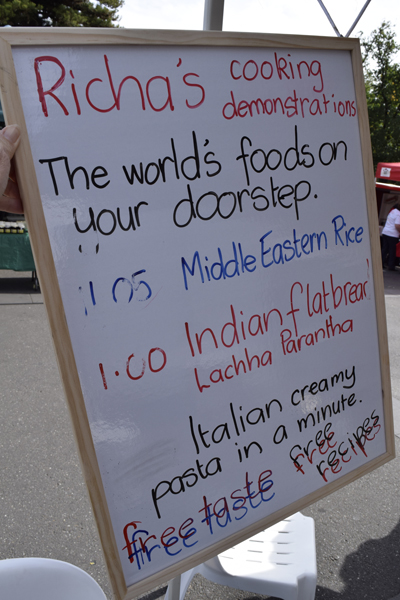 Richa's cooking
demonstrations
The world's foods on
your doorstep.
11 05 Middle Eastern Rice
1.00 Indian flatbread
Lachha Parantha
Italian creamy
pasta in a minute.
free taste free
recipes